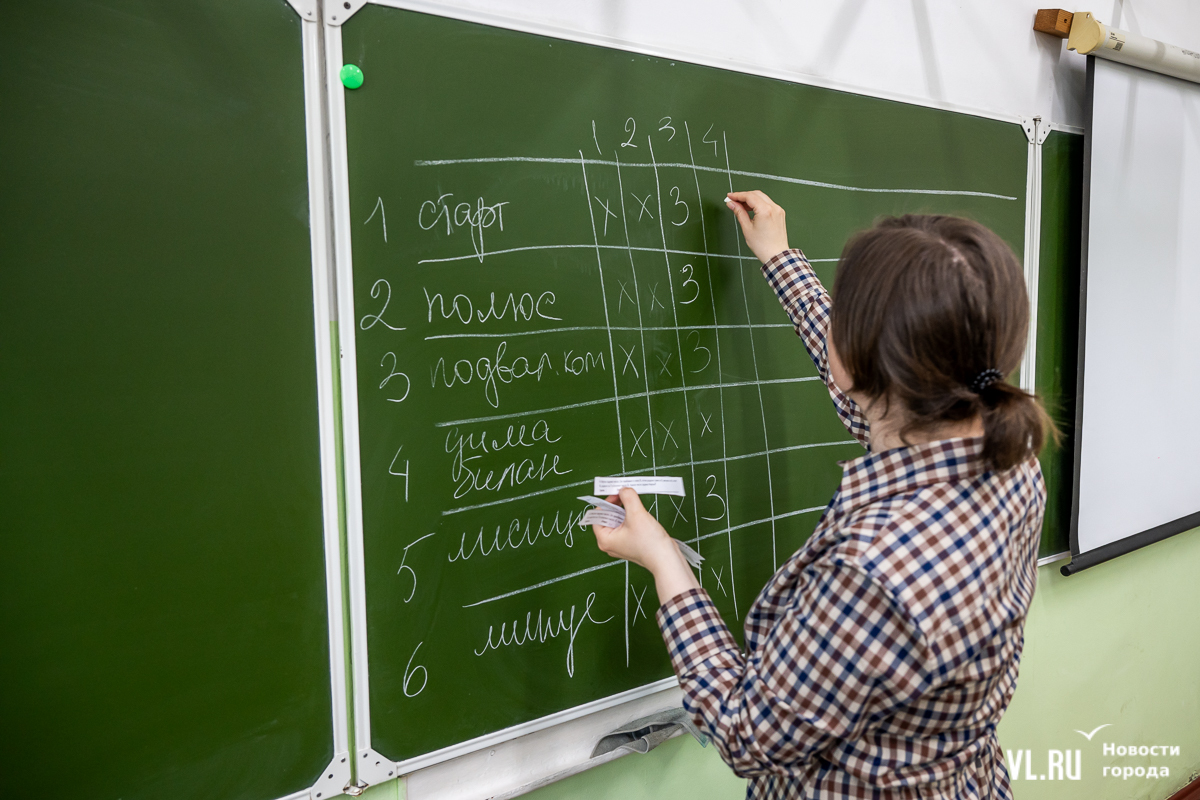 1 2 3 4
1 старт х х 3
2 полюс х х 3
3 подвал.ком х х 3
4 дима х х х
билан
5 лисица х 3
6 минус х х
VL.RU Новости
города